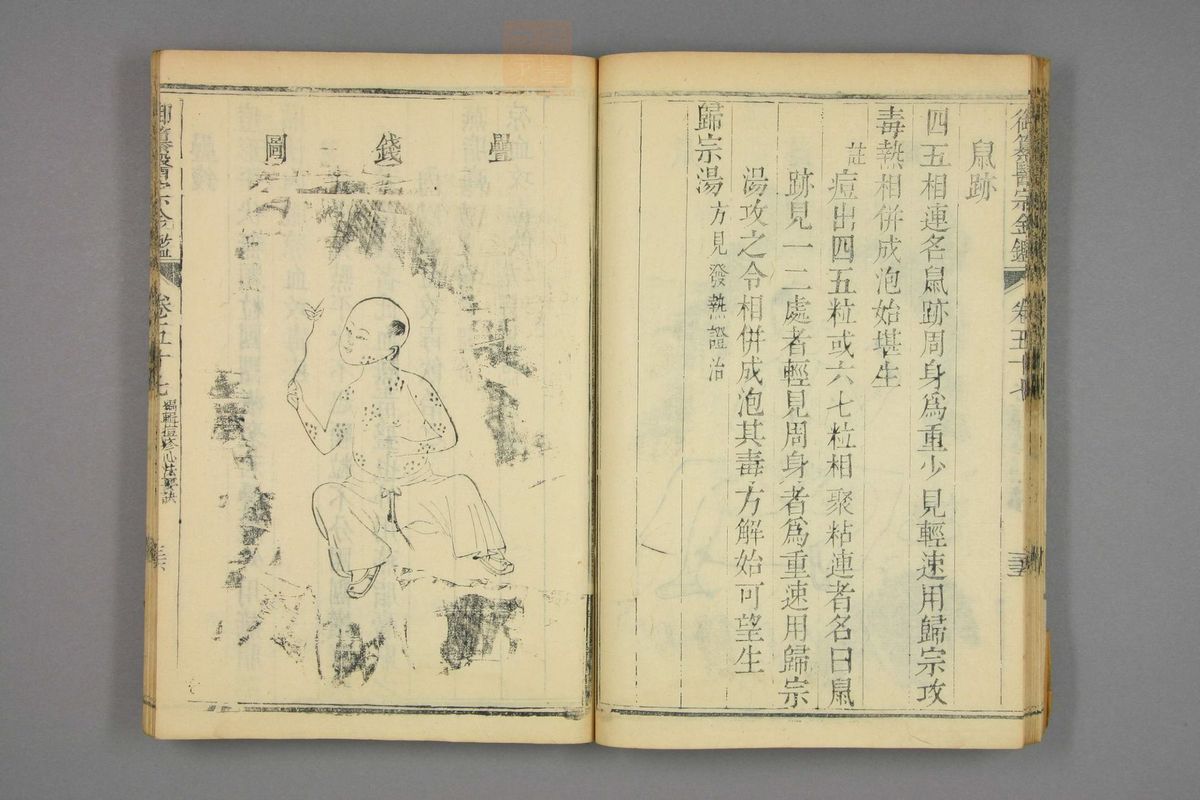 御纂醫宗金鑑
卷五十七
鼠跡
四五相連名鼠跡周身爲重少見輕速用歸宗攻
毒熱相併成泡始堪生
註痘出四五粒或六七粒相聚粘連者名曰鼠
跡見一二處者輕見周身者爲重速用歸宗
湯攻之令相併成泡其毒方解始可望生
歸宗湯方見發熱證治
疊錢圖
御纂醫宗金鑑
卷五十七
編輯痘疹心法要訣